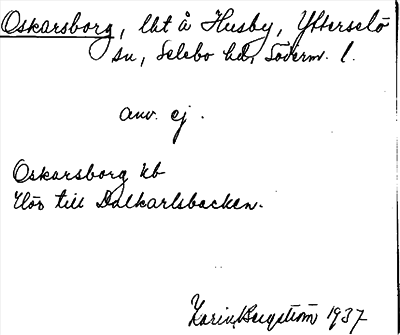 Oskarsborg, lht å Husby, Ytterselö
sn, Selebo hd, Söderm. l.
anv. ej.
Oskarsborg hb
Hör till Dalkarlsbacken.
Karin Bergström 1937